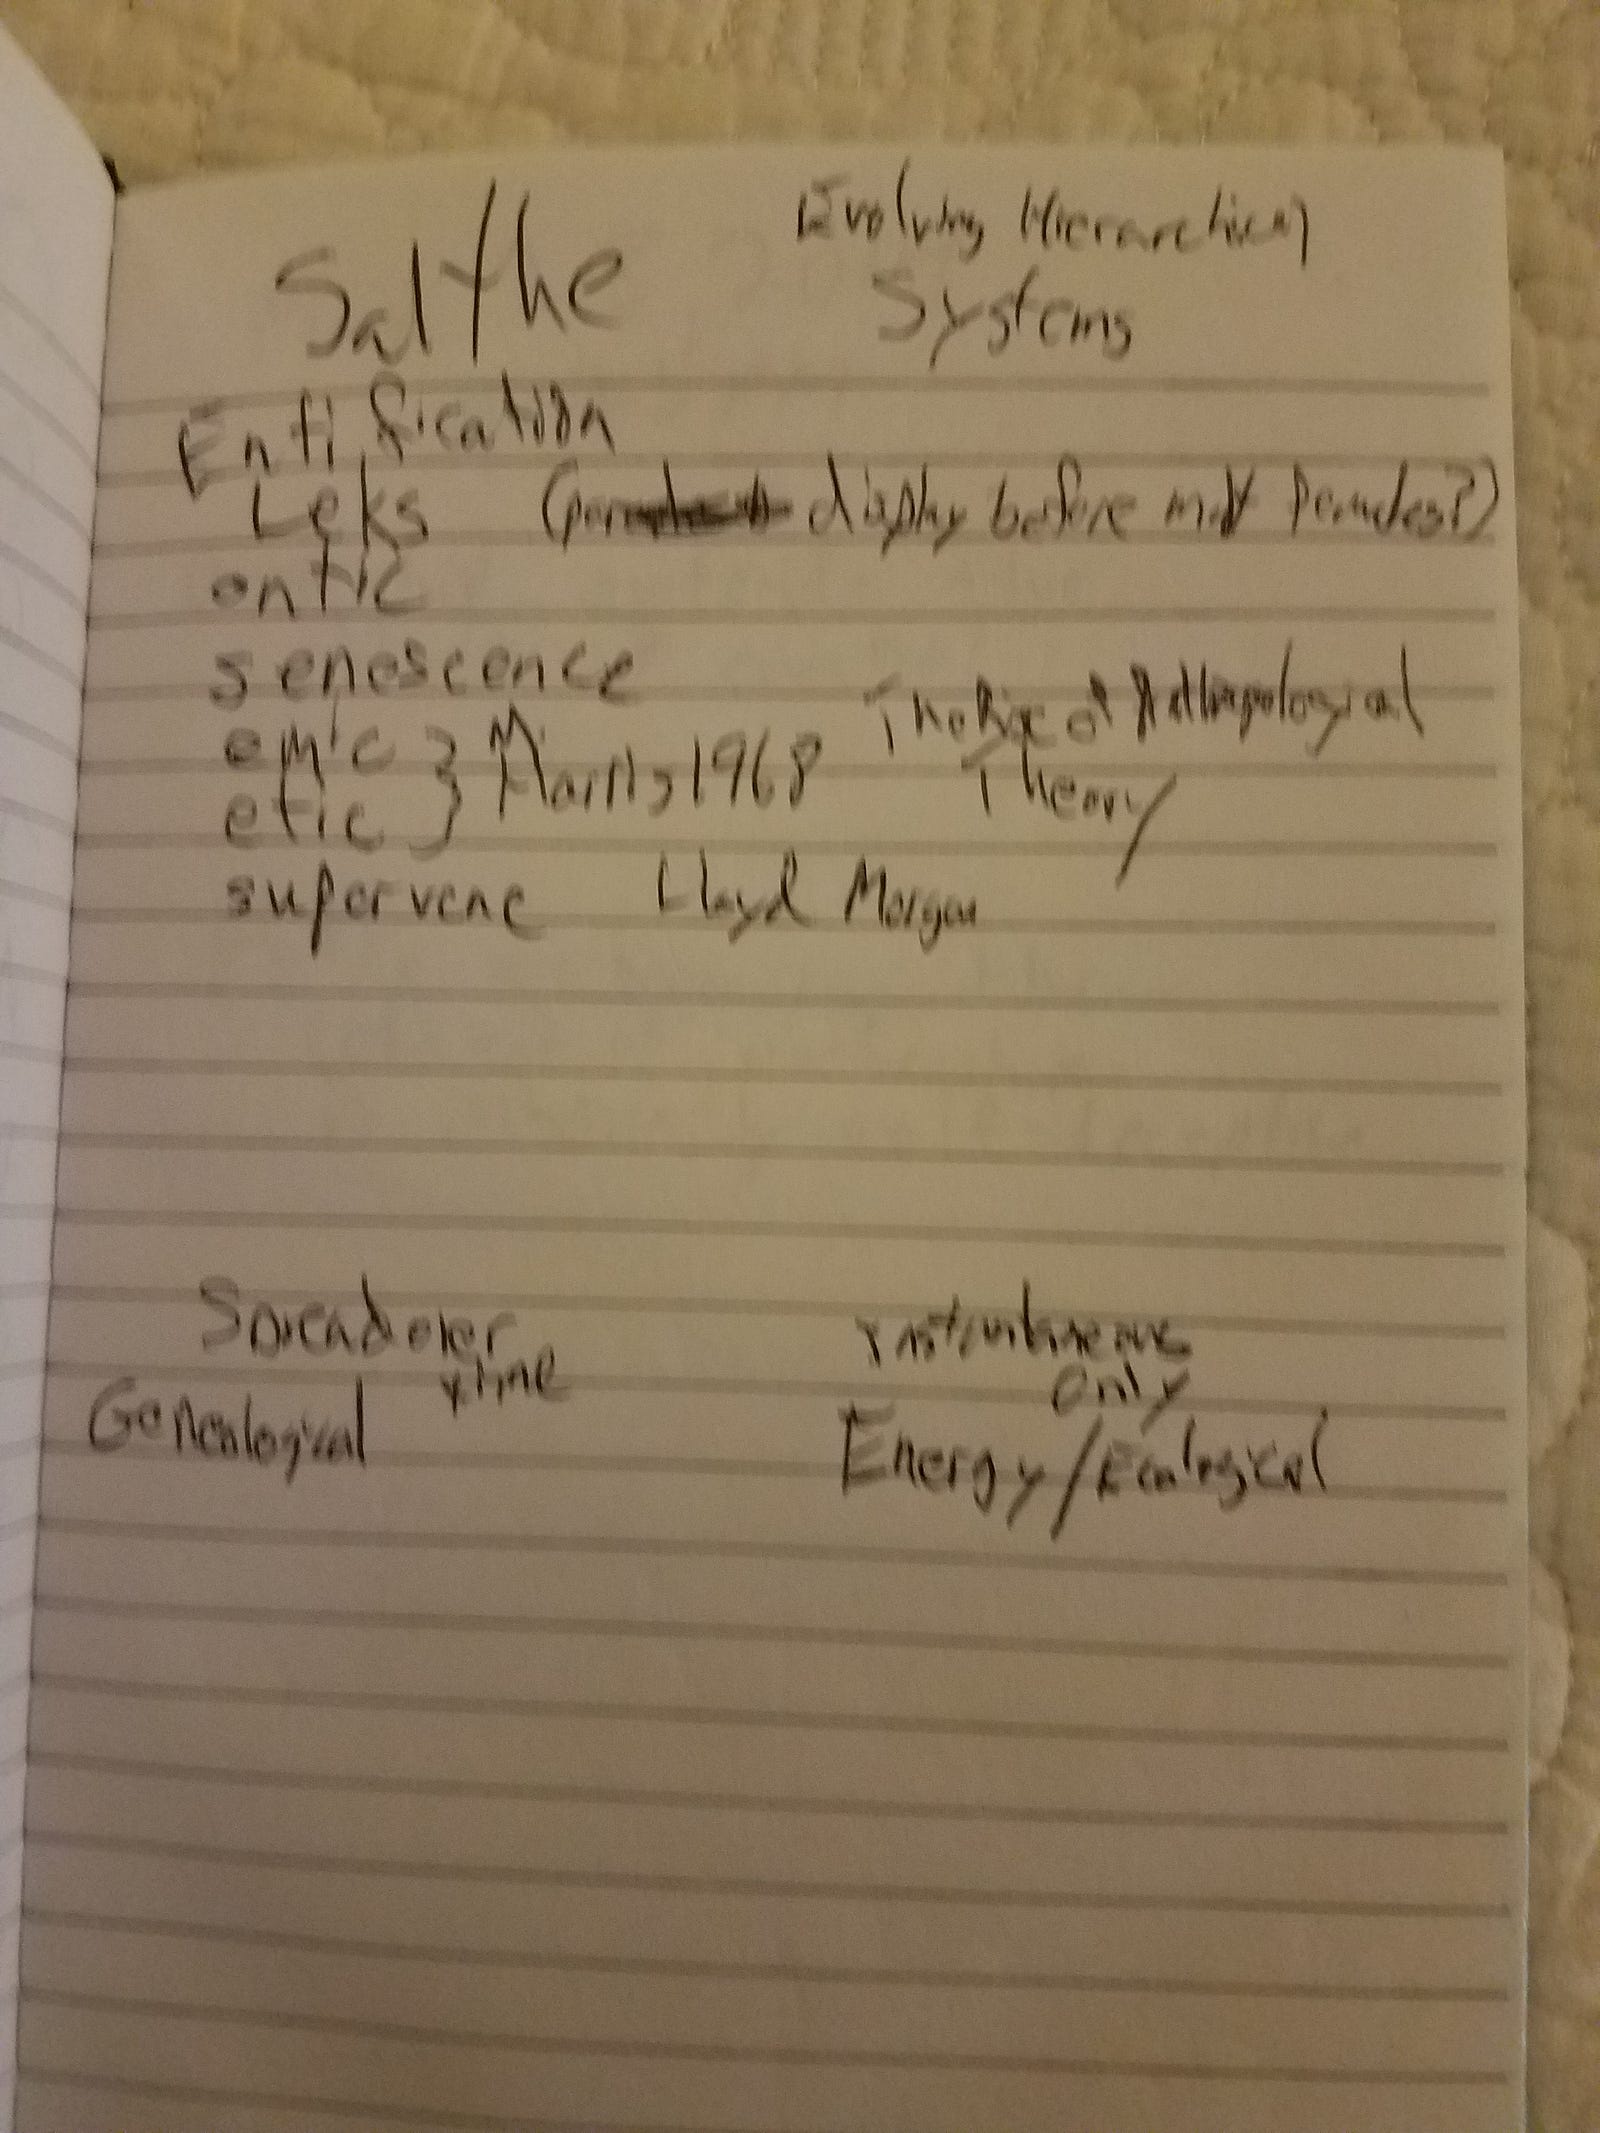 Salthe
Evolving Hierarchical
Systems
Entification
Leks (display before
ontic
senescence
emic } M.
etic } Harris 1968
The Rise of Anthropological
Theory
supervene Lloyd Morgan
Spread over
time
Instantaneous
only
Genealogical
Energy/Ecological